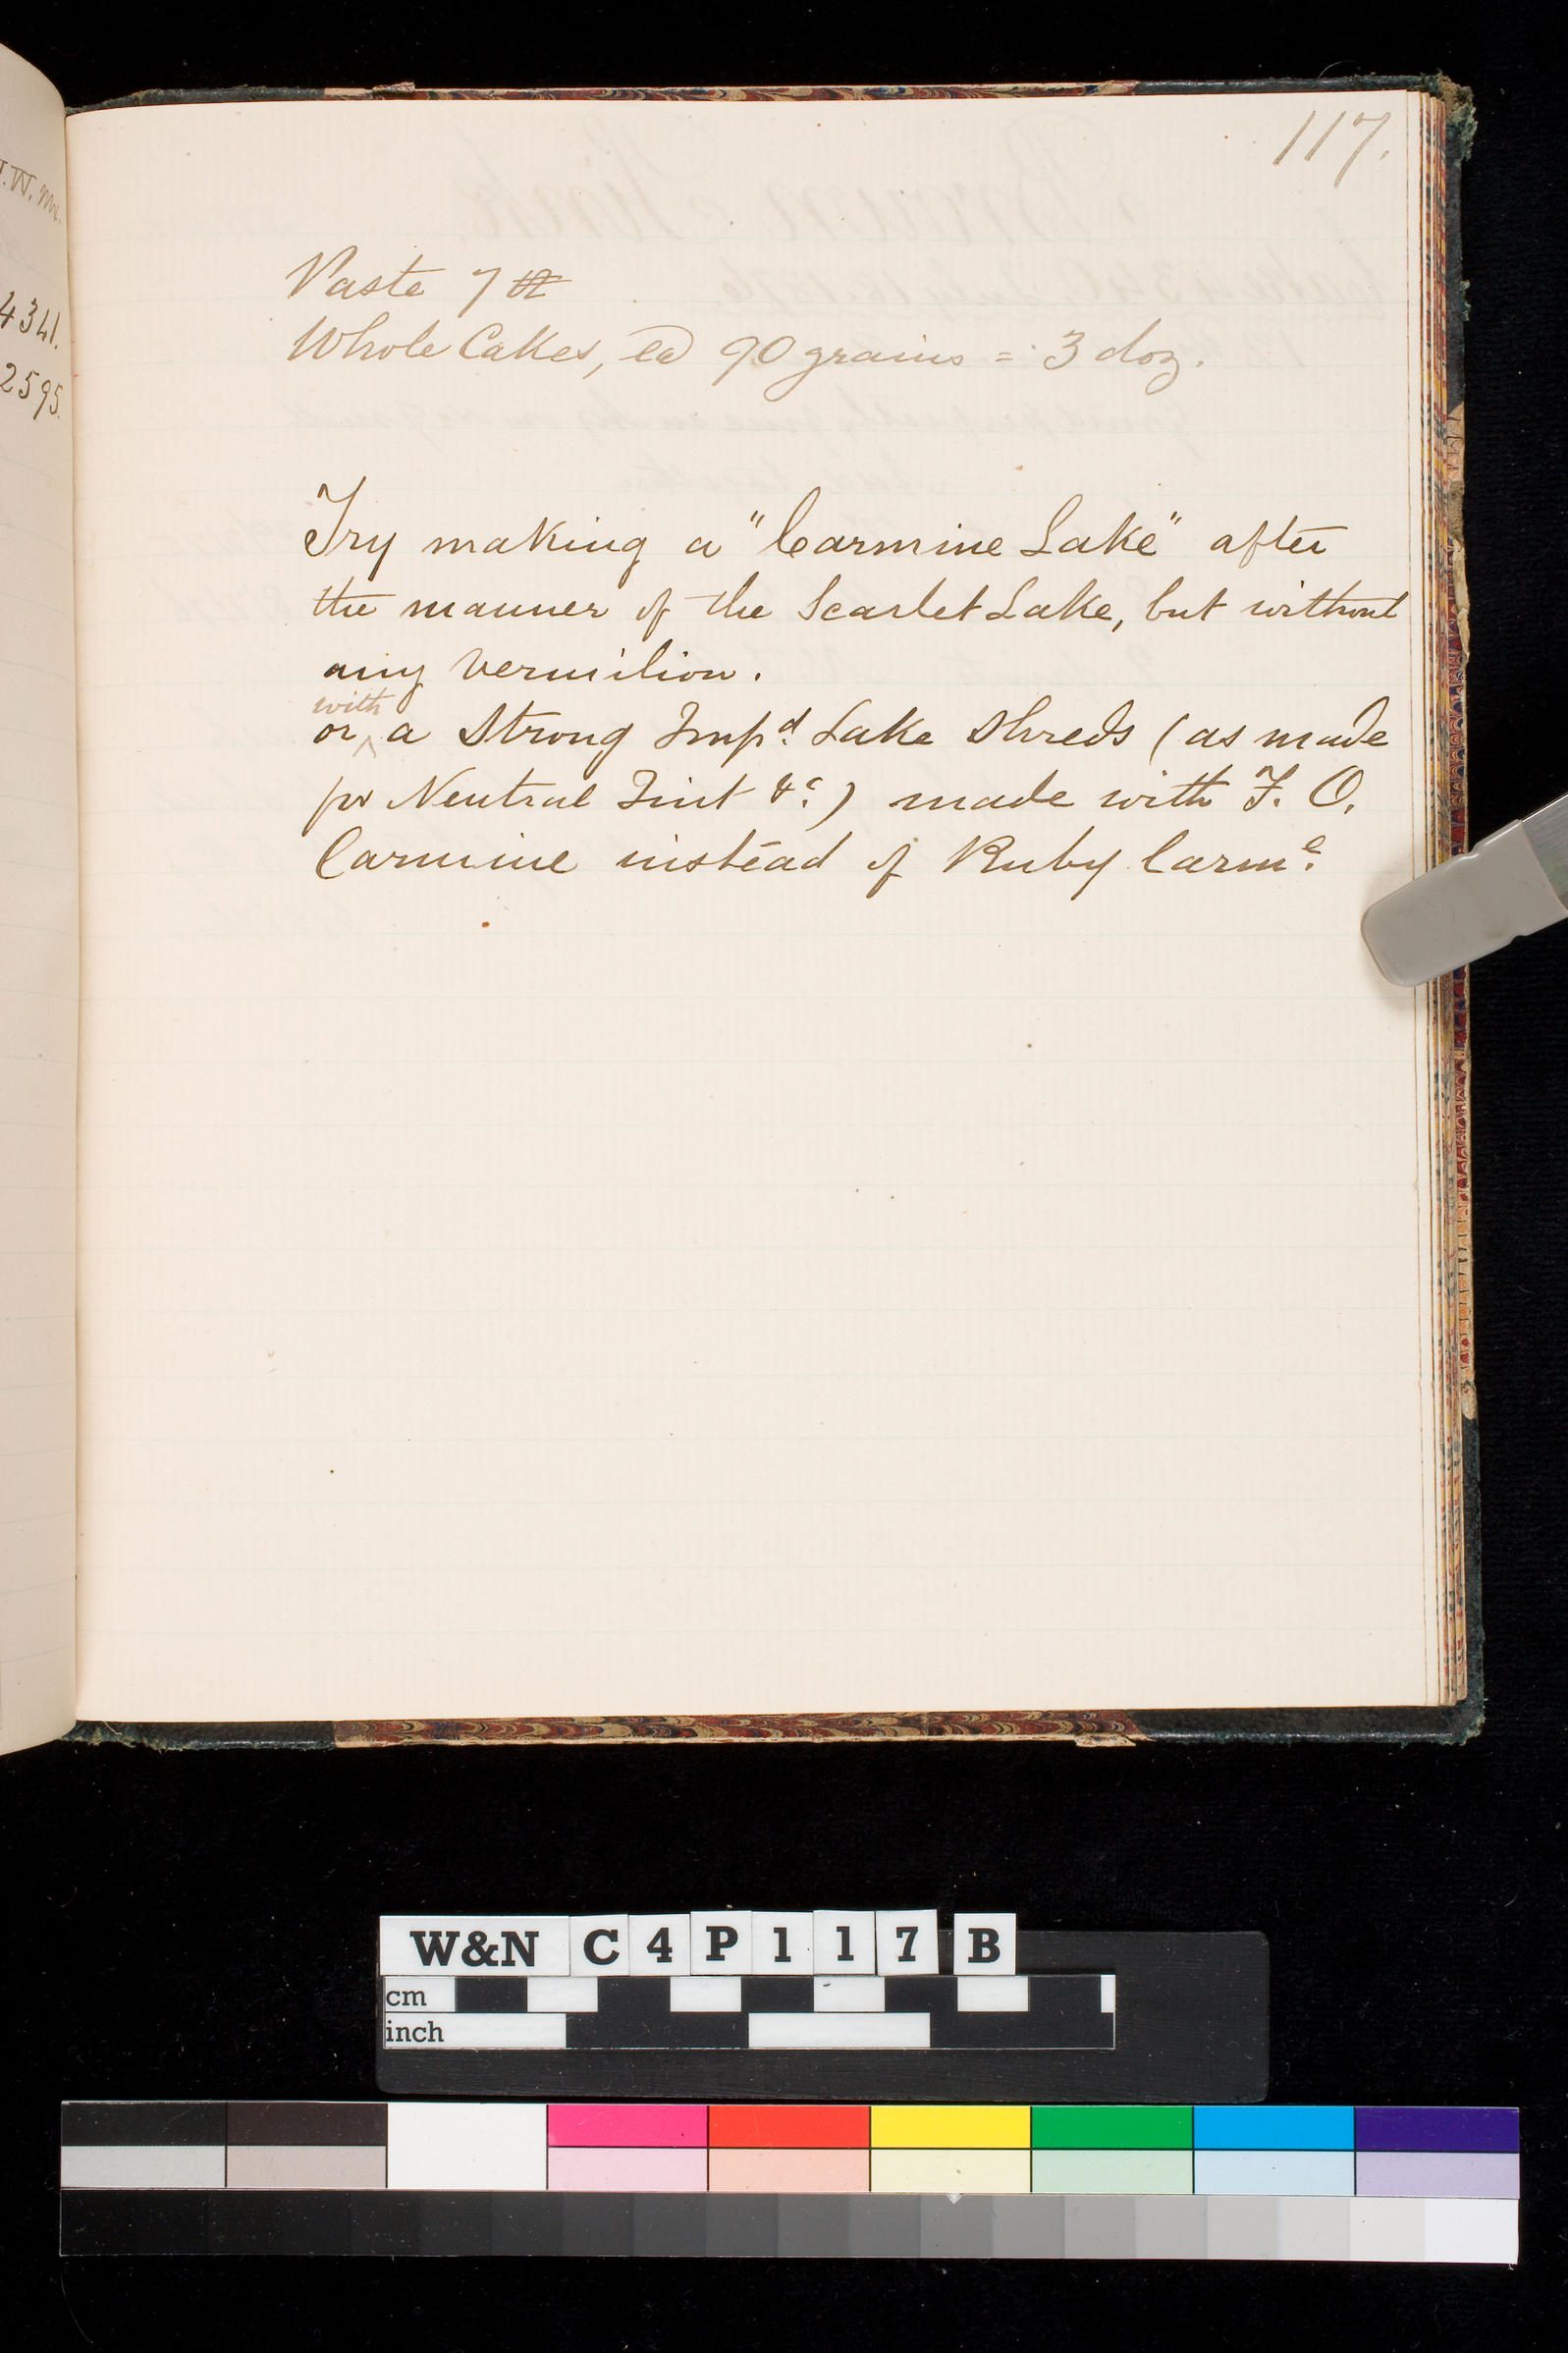 117.
J.W. me.
4341.
2595.
Paste 7 ℔
Whole Cakes, ea 90 grains = 3 doz.
Try making a "Carmine Lake" after
the manner of the Scarlet Lake, but without
any Vermilion.
with
or ^ a Strong Impd. Lake Shreds (as made
for Neutral Tint &c.) made with F. O.
Carmine instead of Ruby Carme.
W&N C 4 P 1 1 7 B
cm
inch